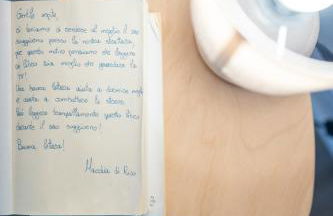 Gentile ospite,
ci teniamo a rendere al meglio il suo
soggiorno presso la nostra struttura,
per questo motivo pensiamo che leggere
un libro sia meglio che guardare la
TV!
Una buona lettura aiuta a dormire meglio
e aiuta a combattere lo stress.
Può leggere tranquillamente questo libro
durante il suo soggiorno!
Buona lettura!
Macchia di Riso